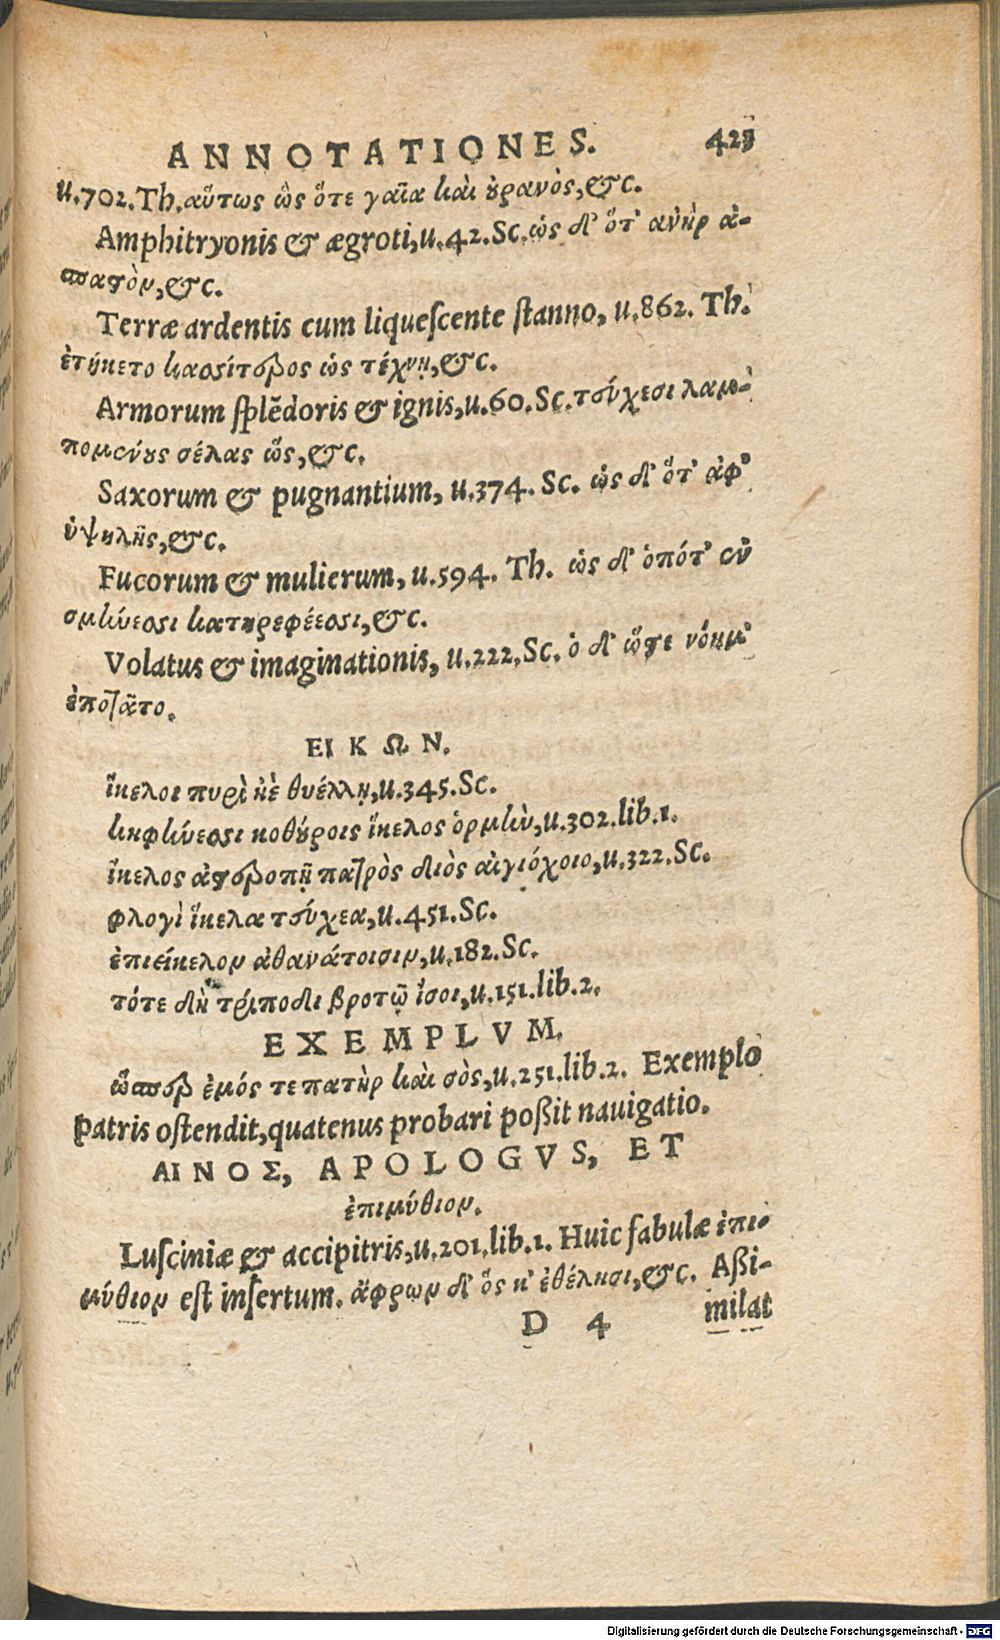 ANNOTATIONES. 423
u.702. Th. αὕτως ὡς ὅτε γαῖα καὶ ȣ̓ρανὸς, &c.
Amphitryonis & ægroti, u.42. Sc. ὡς δ' ὅτ' ανὴρ ἀ-
σπαςὸν, &c.
Terræ ardentis cum liquescente stanno, u.862. Th.
ἐτήκετο κασσίτερος ὡς τέχνῃ, &c.
Armorum splēdoris & ignis, u.60. Sc. τεύχεσι λαμ-
πομένȣς σέλας ὣς, &c.
Saxorum & pugnantium, u.374. Sc. ὡς δ' ὅτ' ἀφ'
ὑψηλῆς, &c.
Fucorum & mulierum, u.594. Th. ὡς δ' ὁπότ' ἐν
σμήνεσσι κατηρεφέεσσι, &c.
Volatus & imaginationis, u.222. Sc. ὁ δ' ὥςε νόημ'
ἐποτᾶτο.
ΕΙΚΩΝ.
ἴκελοι πυρὶ ἠὲ θυέλλῃ, u.345. Sc.
κηφήνεσσι κοθȣ́ροις ἴκελος ὁρμὴν, u.302. lib.1.
ἴκελος ἀςεροπῇ πατρὸς διὸς αἰγιόχοιο, u.322. Sc.
φλογὶ ἴκελα τεύχεα, u.451. Sc.
ἐπιείκελον ἀθανάτοισιν, u.182. Sc.
τότε δὴ τρίποδι βροτῷ ἶσοι, u.151. lib.2.
EXEMPLVM.
ὥσπερ ἐμός τε πατὴρ καὶ σὸς, u.251. lib.2. Exemplo
patris ostendit, quatenus probari poßit nauigatio.
ΑΙΝΟΣ, APOLOGVS, ET
ἐπιμύθιον.
Lusciniæ & accipitris, u.201. lib.1. Huic fabulæ ἐπι-
μύθιον est insertum. ἄφρων δ' ὅς κ' ἐθέλησι, &c. Aßi-
D 4 milat
Digitalisierung gefördert durch die Deutsche Forschungsgemeinschaft - DFG